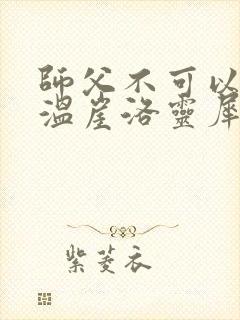 師父不可以
溫崖洛靈犀
紫菱衣